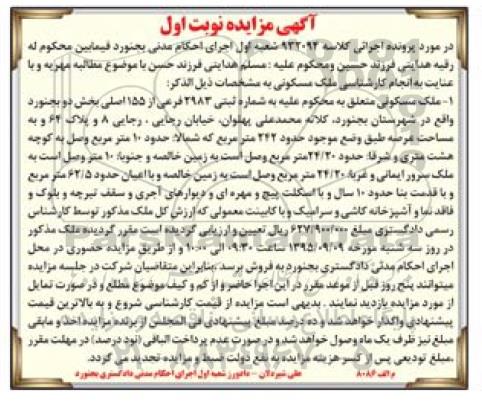 آگهی مزایده نوبت اول
در مورد پرونده اجرائی کلاسه ۹۳۲۰۹۴ شعبه اول اجرای احکام مدنی بجنورد فیمابین محکوم له
رقیه هدایتی فرزند حسین ومحکوم علیه : مسلم هدایتی فرزند حسن با موضوع مطالبه مهریه و با
عنایت به انجام کارشناسی ملک مسکونی به مشخصات ذیل الذکر:
۱- ملک مسکونی متعلق به محکوم علیه به شماره ثبتی ۲۹۸۳ فرعی از ۱۵۵ اصلی بخش دو بجنورد
واقع در شهرستان بجنورد، کلاته محمدعلی پهلوان، خیابان رجایی ، رجایی ۸ و پلاک ۶۴ و به
مساحت عرصه طبق وضع موجود حدود ۲۴۲ متر مربع که شمالا: حدود ۱۰ متر مربع وصل به کوچه
هشت متری و شرقا: حدود ۲۴/۲۰متر مربع وصل است به زمین خالصه و جنوبا: ۱۰ متر وصل است به
ملک سرور ایمانی و غربا: ۲۴/۲۰ متر وصل است به زمین خالصه و با اعیان حدود ۶۲/۵ متر مربع
و با قدمت بنا حدود ۱۰ سال و با اسکلت پیچ و مهره ای و دیوارهای آجری و سقف تیرچه و بلوک و
فاقد نما و آشپزخانه کاشی و سرامیک و با کابینت معمولی که ارزش کل ملک مذکور توسط کارشناس
رسمی دادگستری مبلغ ۶۲۷/۹۰۰/۰۰۰ ریال تعیین و ارزیابی گردیده است مقرر گردیده ملک مذکور
در روز سه شنبه مورخه ۱۳۹۵/۰۹/۰۹ ساعت ۰۹:۳۰ الی ۱۰:۰۰ و از طریق مزایده حضوری در محل
اجرای احکام مدنی دادگستری بجنورد به فروش برسد .بنابراین متقاضیان شرکت در جلسه مزایده
میتوانند پنج روز قبل از موعد مقرر در این اجرا حاضر و از کم و کیف موضوع مطلع و در صورت تمایل
از مورد مزایده بازدید نمایند . بدیهی است مزایده از قیمت کارشناسی شروع و به بالاترین قیمت
پیشنهادی واگذار خواهد شد و ده درصد مبلغ پیشنهادی فی المجلس از برنده مزایده اخذ و مابقی
مبلغ نیز ظرف یک ماه وصول خواهد شد و در صورت عدم پرداخت الباقی (نود درصد) در مهلت مقرر
،مبلغ تودیعی پس از کسر هزینه مزایده به نفع دولت ضبط و مزایده تجدید می گردد.
م الف ۸۰۸۶
علی شیردلان - دادورز شعبه اول اجرای احکام مدنی دادگستری بجنورد